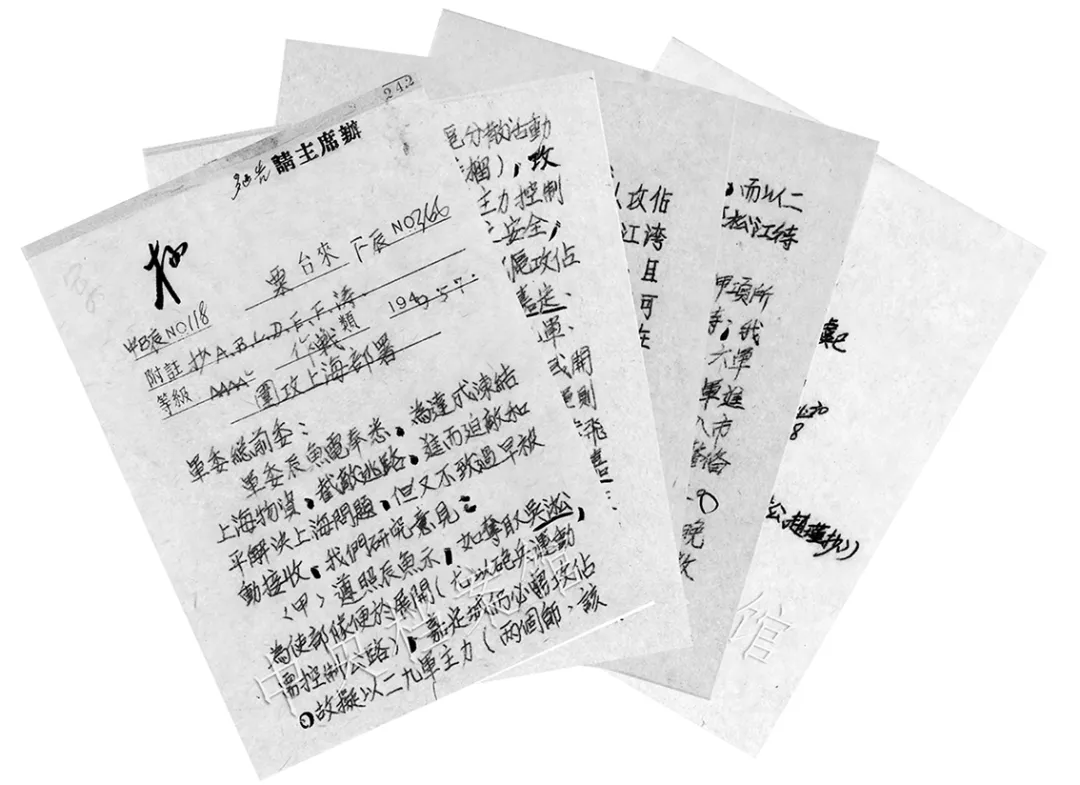 242
請主席辦
粟台來 下辰NO3166
申B辰NO118
附註 抄A.B.C.D.E.F.涛.
等級 AAAA 作戰類 1949.5.7.
圍攻上海部署
軍委總前委：
軍委辰魚電奉悉，為達成凍結
上海物資，截敵逃路，進而迫敵和
平解決上海問題，但又不致過早被
動接收，我們研究意見：
〈甲〉遵照辰魚示，如奪取吳淞，
為使部隊便於展開（尤以砲兵運動
需控制公路），嘉定城仍必需攻佔
。故擬以二九軍主力（兩個師、該
區分散活動
，攻
主力控制
安全，
攻佔
嘉定、
軍、
或開
則
飛
攻佔
江湾
且
可
在
，而以二
松江待
甲項所
；我
六軍
軍進
入市
晚
攻
8
抄））
中央档案馆
馆